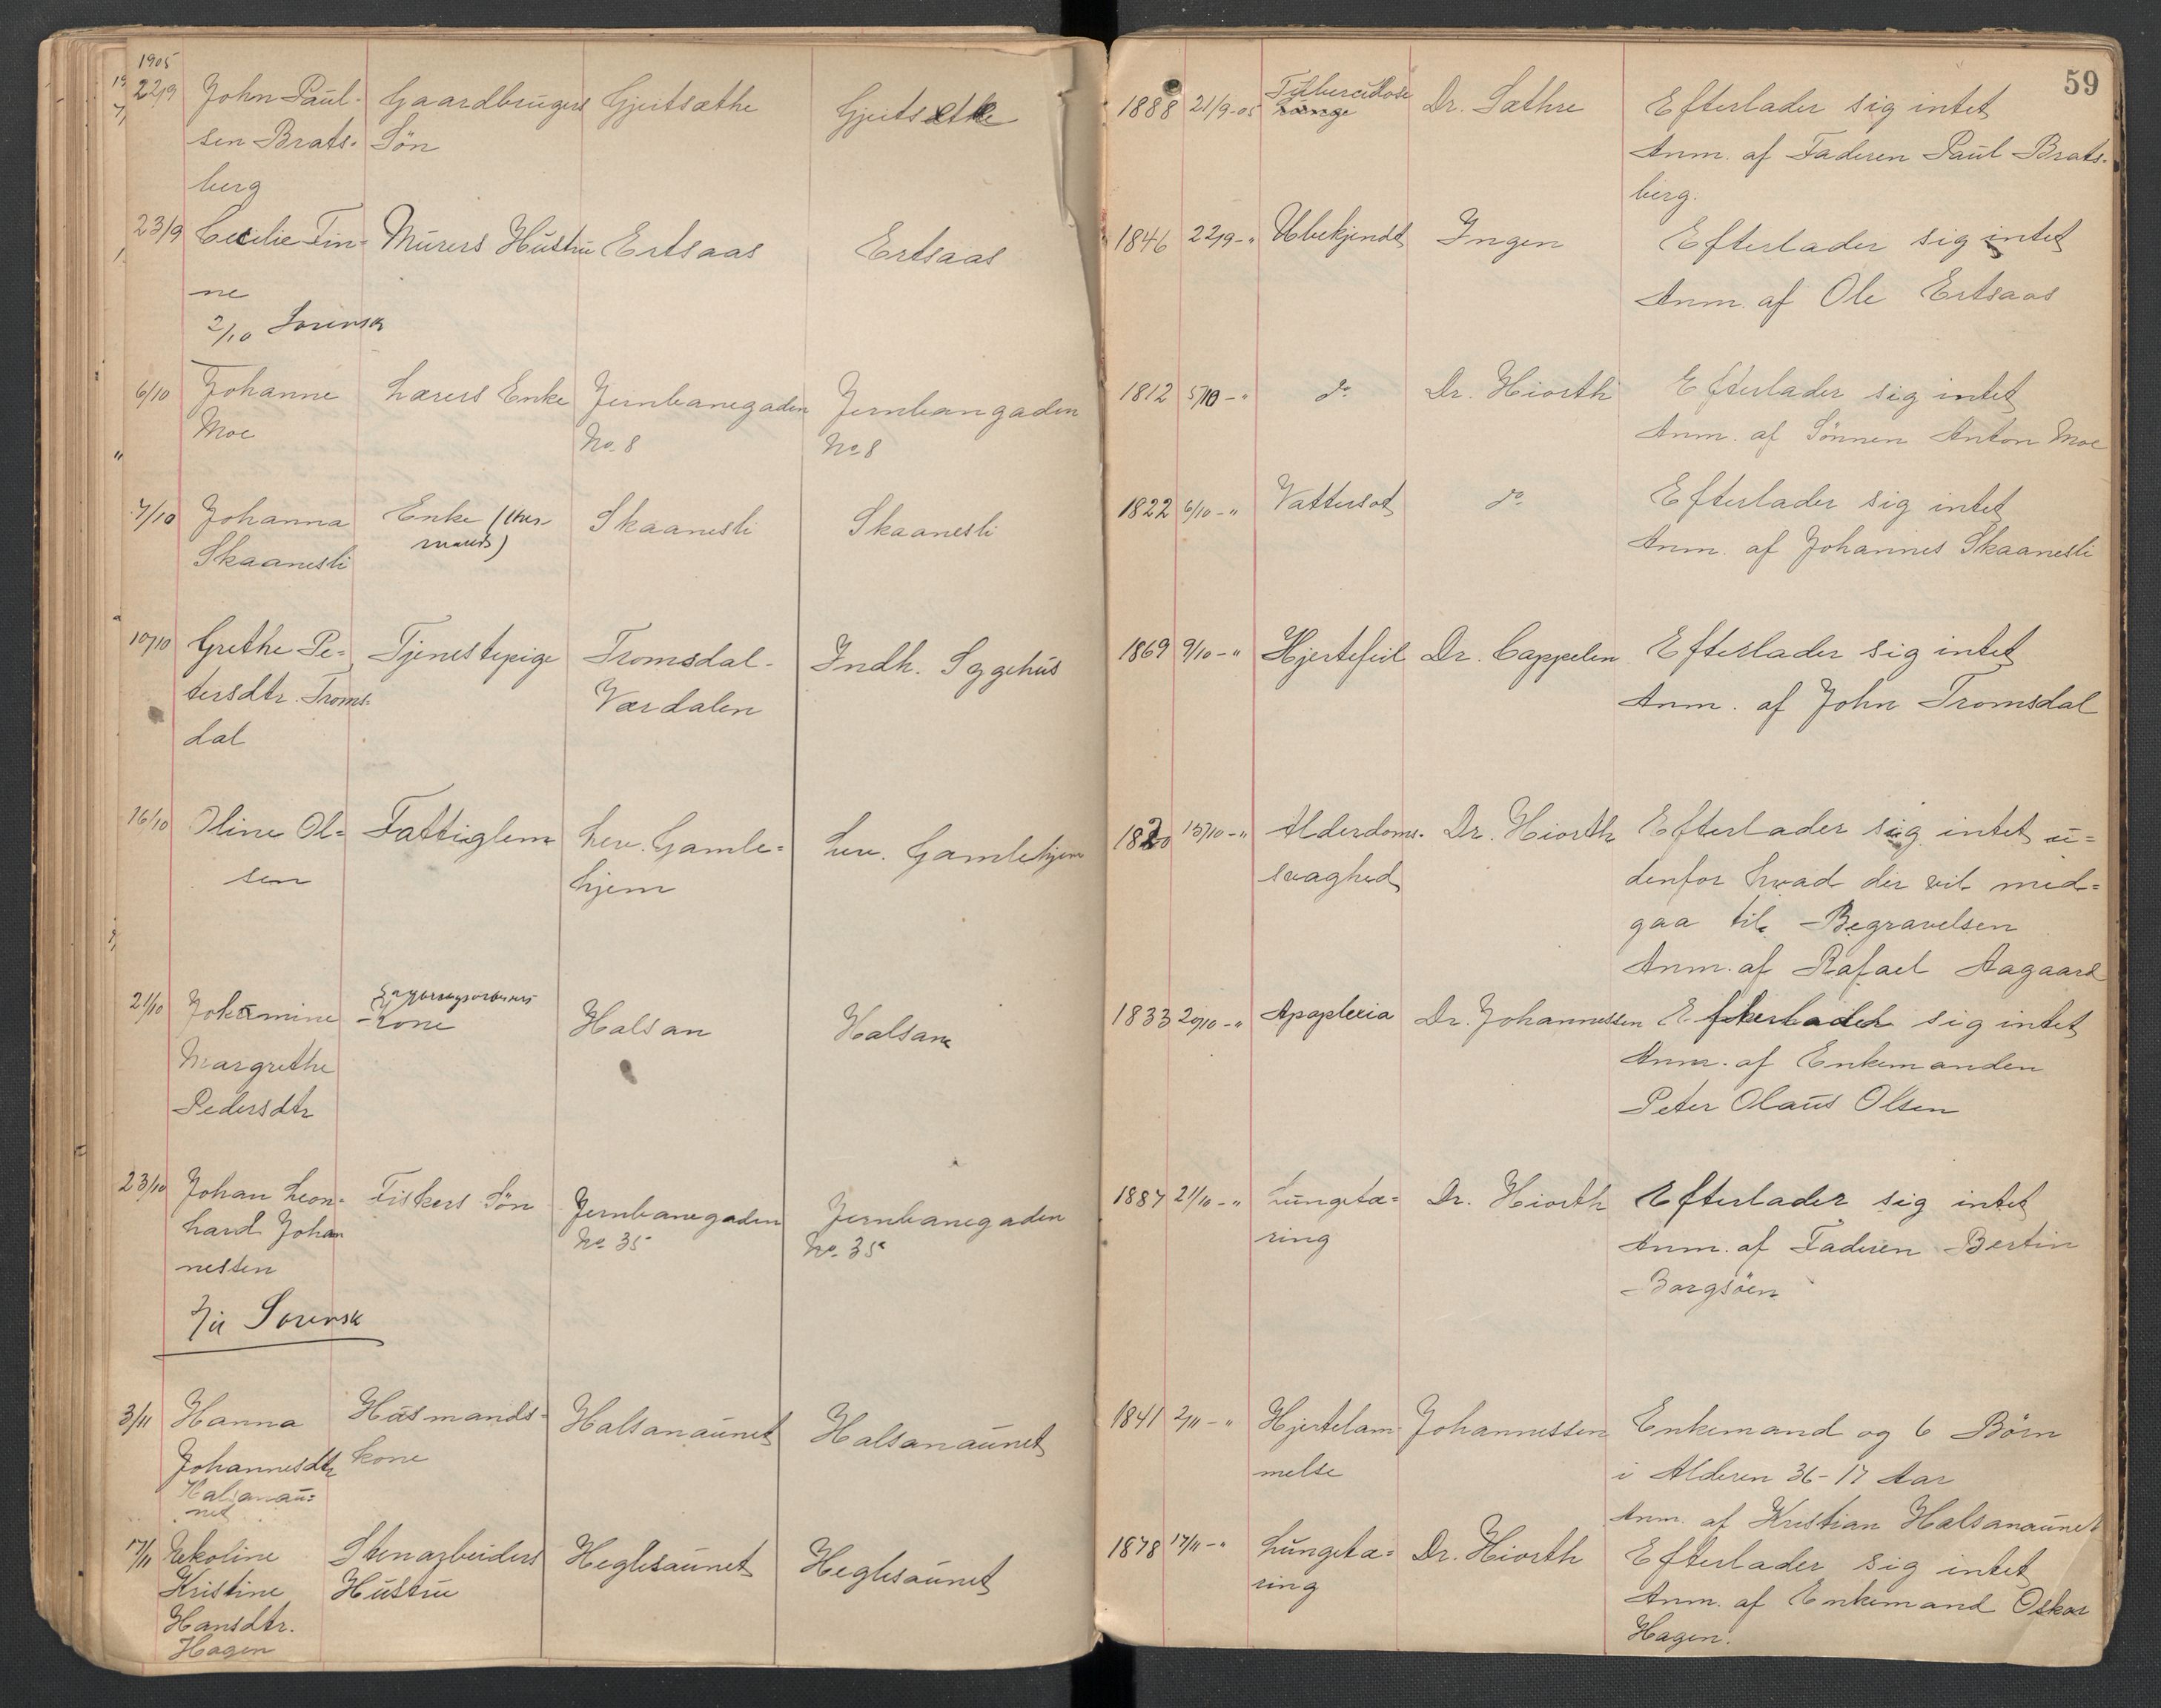 59
1905
22/9 John Paul- Gaardbrugers Gjeitsæthe Gjeitsæthe 1888 21/9-05 Tuberculose Dr. Sæthre Efterlader sig intet
sen Brats- Søn Anm. af Faderen Paul Brats-
berg berg.
23/9 Cecilie Fin- Murers Hustru Ertsaas Ertsaas 1846 22/9-" Ubekjendt Ingen Efterlader sig intet
ne Anm. af Ole Ertsaas
2/10 Sorensk
6/10 Johanne Lærers Enke Jernbanegaden Jernbangaden 1812 5/10-" do Dr. Hiorth Efterlader sig intet
Moe No. 8 No 8 Anm. af Sønnen Anton Moe
7/10 Johanna Enke Skaanesli Skaanesli 1822 6/10-" Vattersot do Efterlader sig intet
Skaanesli Anm. af Johannes Skaanesli
10/10 Grethe Pe- Tjenestepige Tromsdal- Indh. Sygehus 1869 9/10-" Hjertefeil Dr. Cappelen Efterlader sig intet
tersdtr. Troms- Værdalen Anm. af John Tromsdal
dal
16/10 Oline Ol= Fattiglem Lev. Gamle= Lev. Gamlehjem 1820 15/10-" Alderdoms- Dr. Hiorth Efterlader sig intet u=
sen hjem svaghed denfor hvad der vil med=
gaa til Begravelsen
Anm. af Rafael Aagaard
21/10 Jokumine -kone Halsan Halsan 1833 20/10-" Apoplexia Dr. Johannessen Efterlader sig intet
Margrethe Anm. af Enkemanden
Pedersdtr Peter Olaus Olsen
23/10 Johan Leon- Fiskers Søn Jernbanegaden Jernbanegaden 1887 21/10-" Lungetæ= Dr. Hiorth Efterlader sig intet
hard Johan No. 35 No. 35 ring Anm. af Faderen Bertin
nessen Borgsøen
Sorensk
3/11 Hanna Husmands- Halsanaunet Halsanaunet 1841 2/11-" Hjertelam Johannessen Enkemand og 6 Børn
Johannesdtr kone melse i Alderen 36-17 Aar
Halsanau= Anm. af Kristian Halsanaunet
net
17/11 Nekoline Stenarbeiders Heglesaunet Heglesaunet 1878 17/11-" Lungetæ= Dr. Hiorth Efterlader sig intet
Kristine Hustru ring Anm. af Enkemand Oskar
Hansdtr. Hagen.
Hagen